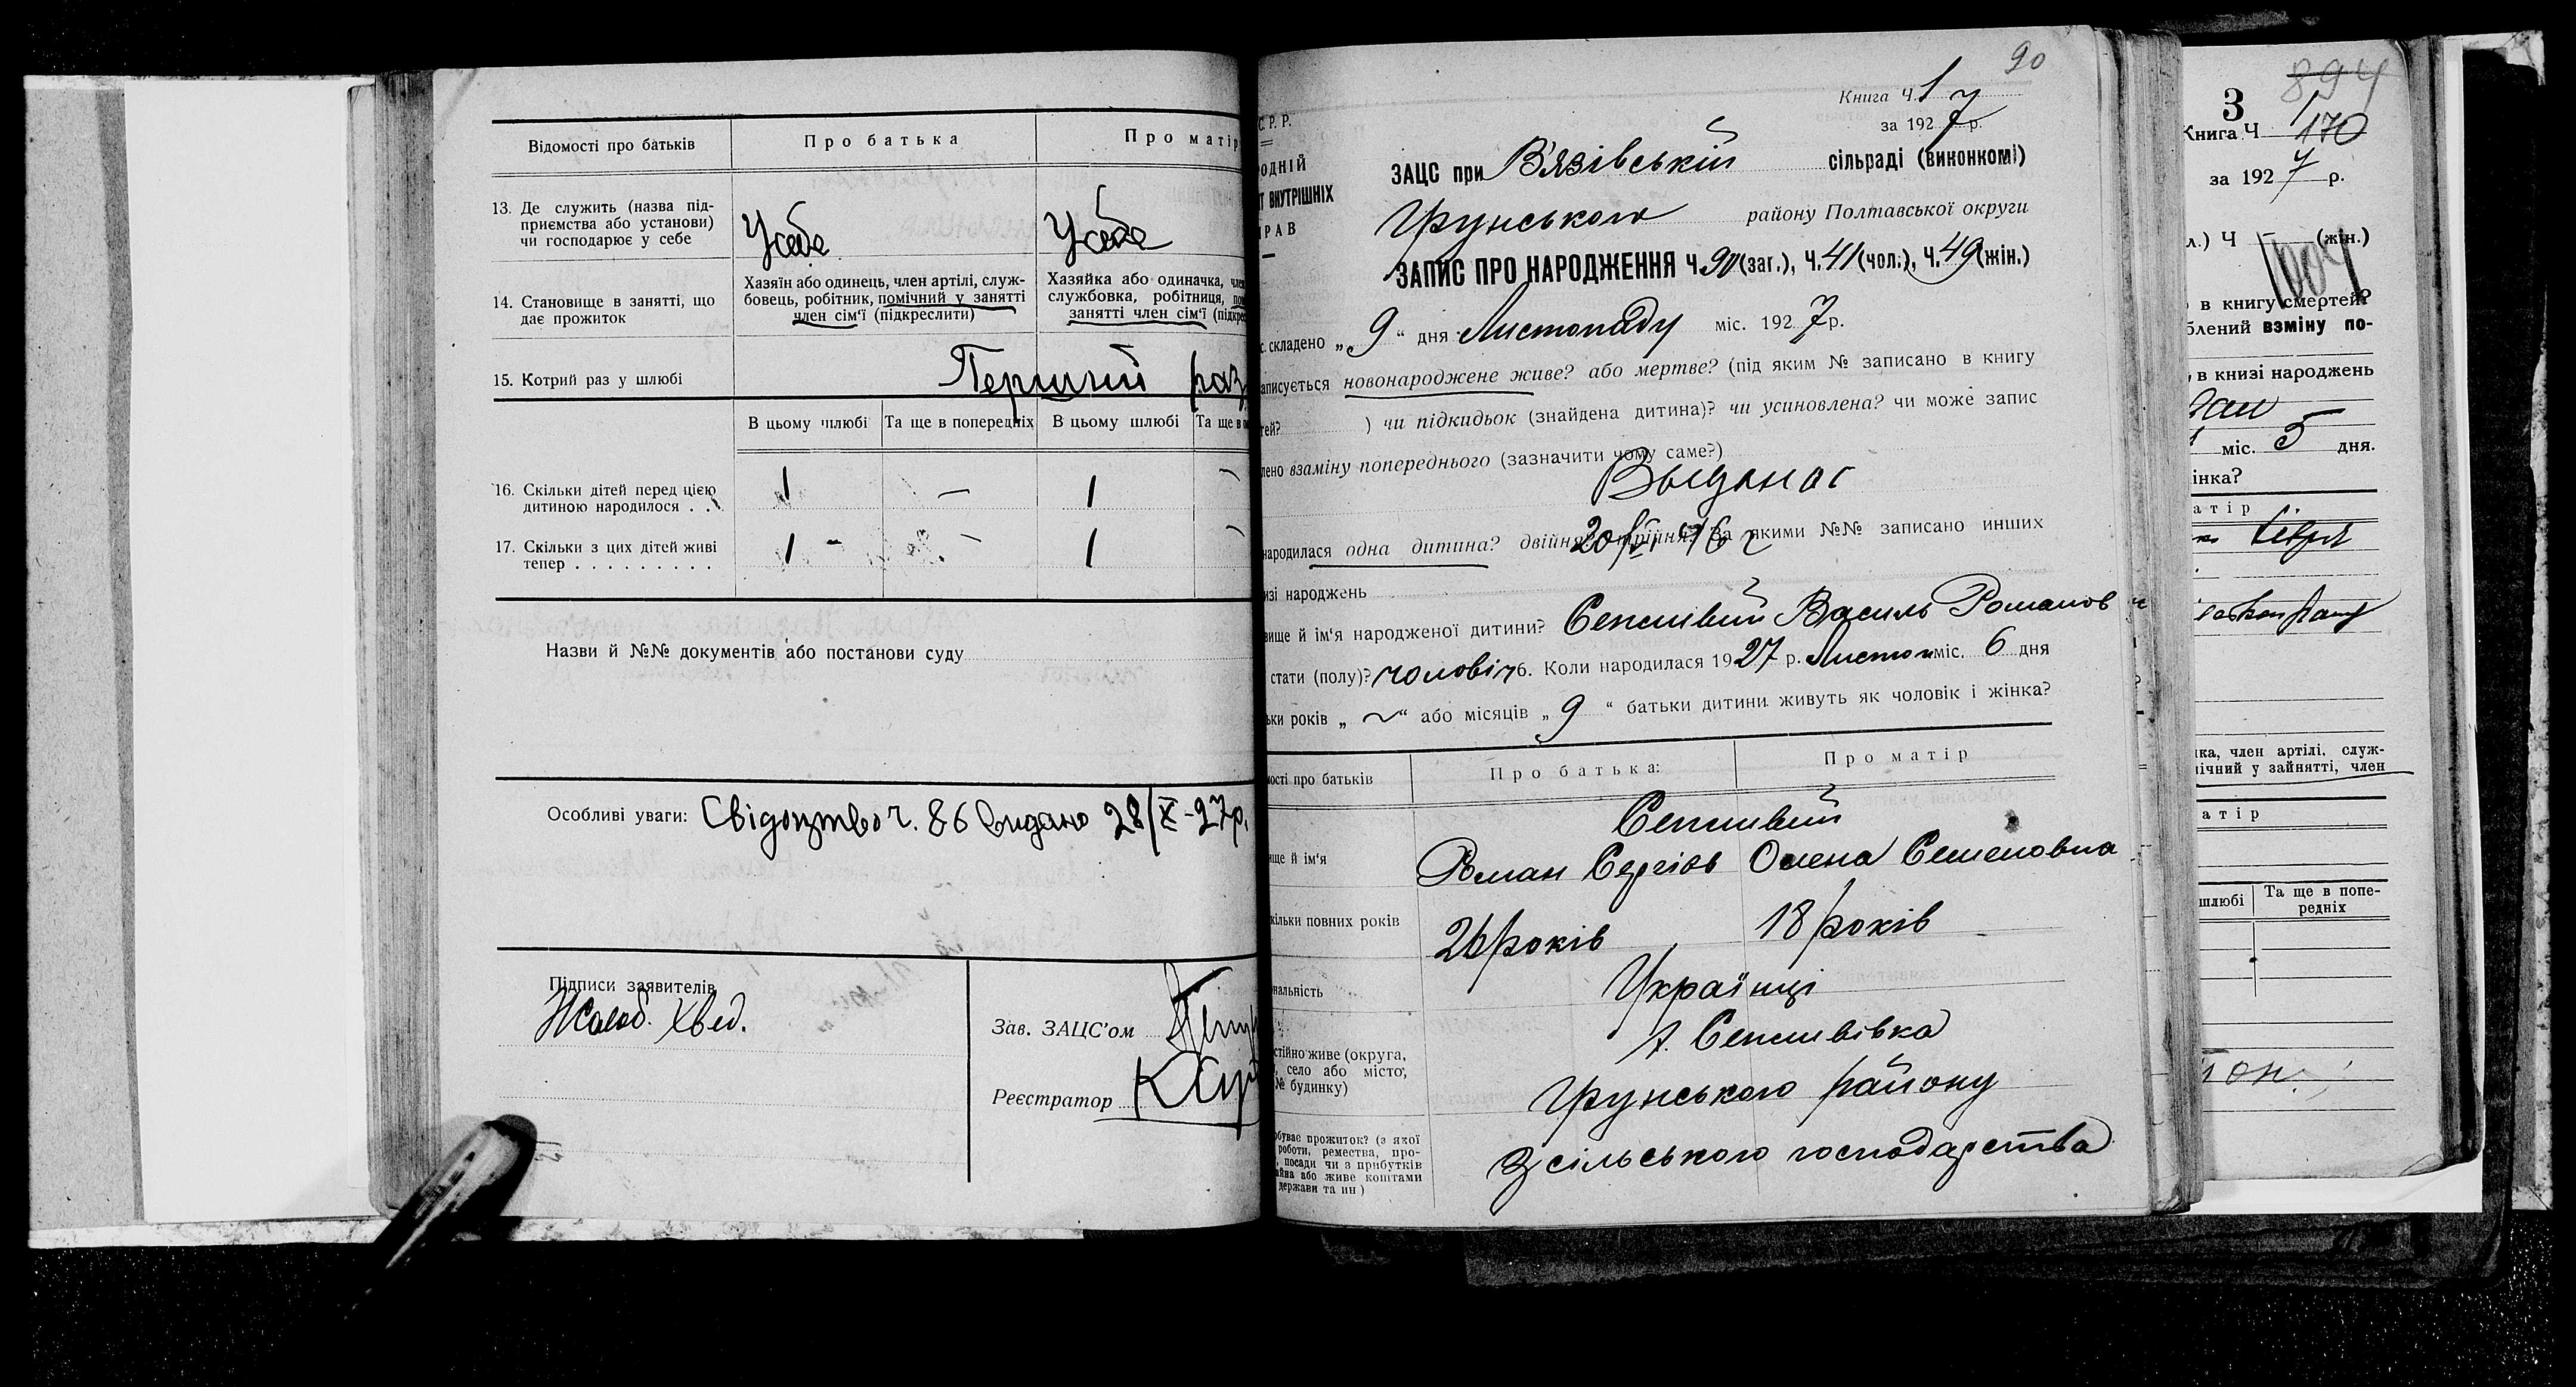 Відомості про батьків
Про батька
Про матір
13. Де служить (назва під-
приємства або установи)
чи господарює у себе
У себе
У себе
14. Становище в занятті, що
дає прожиток
Хазяїн або одинець, член артілі, служ-
бовець, робітник, помічний у занятті
член сім'ї (підкреслити)
Хазяйка або одиначка, член
службовка, робітниця, по
занятті член сім'ї (підкре
15. Котрий раз у шлюбі
Перший раз
В цьому шлюбі
Та ще в попередніх
В цьому шлюбі
Та ще в
16. Скільки дітей перед цією
дитиною народилося . .
1 — 1 —
17. Скільки з цих дітей живі
тепер . . . . . . . . .
1 - — 1 —
Назви й №№ документів або постанови суду
Особливі уваги: Свідоцтво ч. 86 видано 28/X-27р.
Підписи заявителів
Хвед.
Зав. ЗАЦС'ом
Реєстратор
90
Книга Ч. 1
за 1927 р.
С. Р. Р.
ОДНІЙ
Т ВНУТРІШНІХ
РАВ
ЗАЦС при В'язівській сільраді (виконкомі)
Грунського району Полтавської округи
ЗАПИС ПРО НАРОДЖЕННЯ Ч. 90 (заг.), Ч. 41 (чол.), Ч. 49 (жін.)
с. складено „ 9 “ дня Листопаду міс. 1927 р.
аписується новонароджене живе? або мертве? (під яким № записано в книгу
тей? ) чи підкидьок (знайдена дитина)? чи усиновлена? чи може запис
лено взаміну попереднього (зазначити чому саме?)
20/VI 46 г
народилася одна дитина? двійня? трійня? За якими №№ записано инших
изі народжень
вище й ім'я народженої дитини? Сепсивий Василь Романов
стати (полу)? чоловіч 6. Коли народилася 1927 р. Листоп міс. 6 дня
ьки років „ ~ “ або місяців „ 9 “ батьки дитини живуть як чоловік і жінка?
мості про батьків
Про батька:
Про матір
Сепсивий
ище й ім'я
Роман Сергіїв
Олена Семеновна
кільки повних років
26 років
18 років
нальність
Українці
стійно живе (округа,
, село або місто,
№ будинку)
х. Сепсивівка
Грунського району
обуває прожиток? (з якої
роботи, ремества, про-
, посади чи з прибутків
айва або живе коштами
держави та ин)
З сільського господарства
894
3
Книга Ч 1
170
за 1927 р.
л.) Ч (жін.)
в книгу смертей?
блений взміну по-
, в книзі народжень
міс. 5 дня.
інка?
атір
ка, член артілі, служ-
ічний у зайнятті, член
атір
шлюбі
Та ще в попе-
редніх